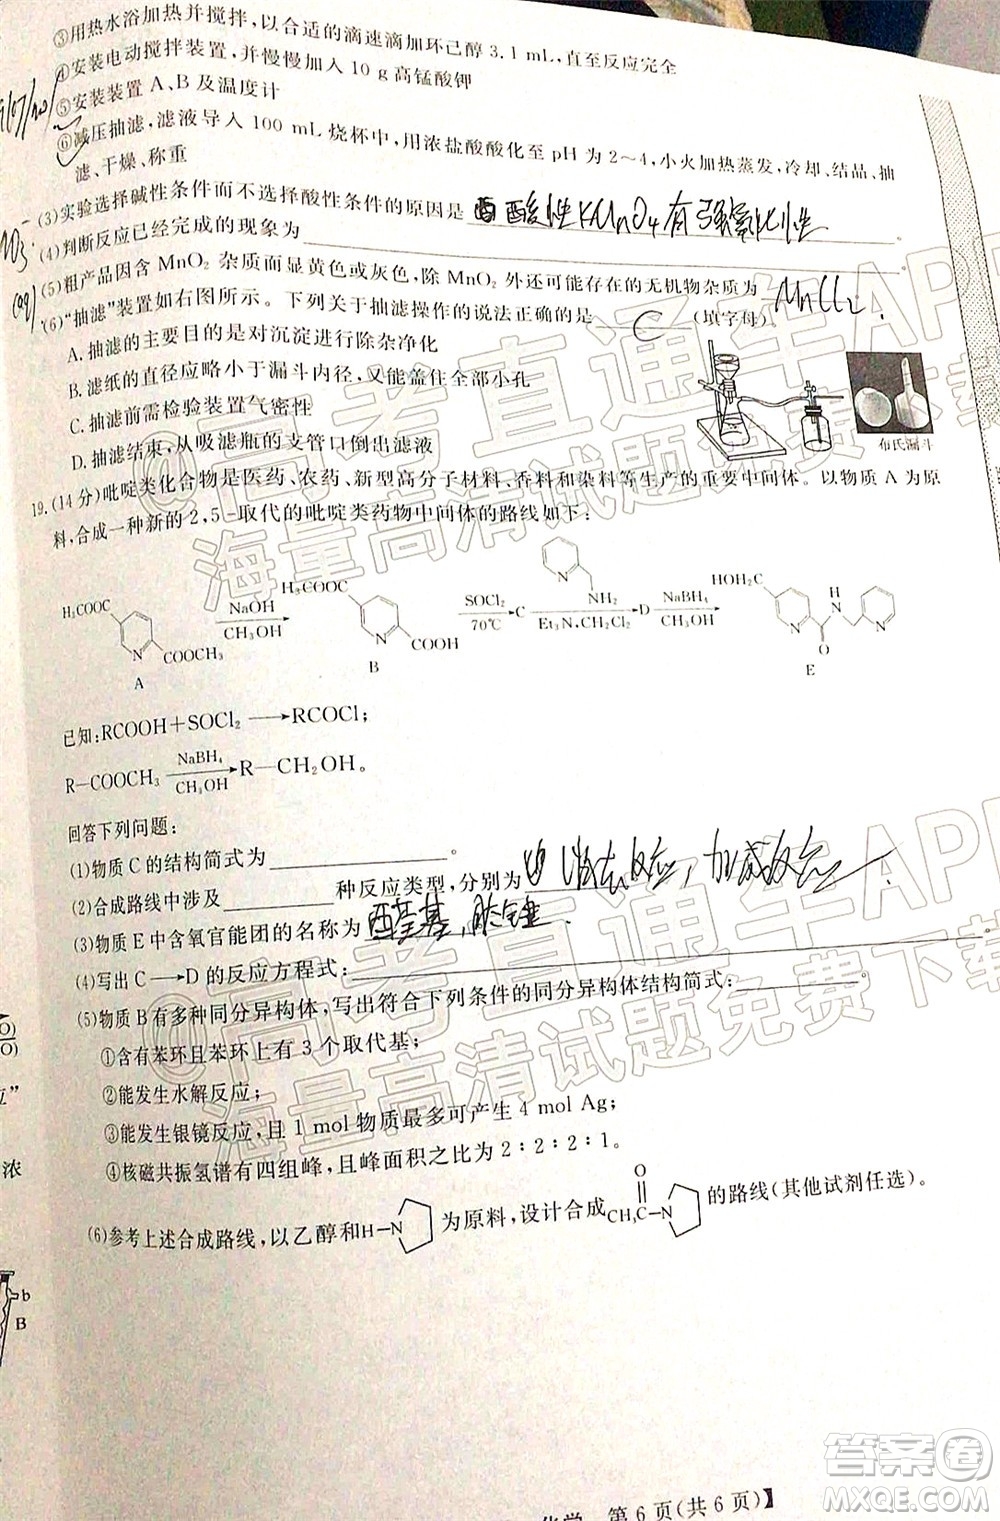 ③用热水浴加热并搅拌，以合适的滴速滴加环己醇 3.1 mL，直至反应完全
④安装电动搅拌装置，并慢慢加入 10 g 高锰酸钾
⑤安装装置 A、B 及温度计
⑥减压抽滤，滤液导入 100 mL 烧杯中，用浓盐酸酸化至 pH 为 2～4，小火加热蒸发，冷却、结晶、抽
滤、干燥、称重
(3)实验选择碱性条件而不选择酸性条件的原因是 酸性KMnO4有强氧化性
(4)判断反应已经完成的现象为
(5)粗产品因含 MnO₂ 杂质而显黄色或灰色，除 MnO₂ 外还可能存在的无机物杂质为 MnCl2
(6)“抽滤”装置如右图所示。下列关于抽滤操作的说法正确的是 C (填字母)。
A. 抽滤的主要目的是对沉淀进行除杂净化
B. 滤纸的直径应略小于漏斗内径，又能盖住全部小孔
C. 抽滤前需检验装置气密性
D. 抽滤结束，从吸滤瓶的支管口倒出滤液
布氏漏斗
19. (14 分)吡啶类化合物是医药、农药、新型高分子材料、香料和染料等生产的重要中间体。以物质 A 为原
料，合成一种新的 2,5-取代的吡啶类药物中间体的路线如下：
H₃COOC N COOCH₃ A
NaOH CH₃OH
H₃COOC N COOH B
SOCl₂ 70℃ C
N NH₂ Et₃N,CH₂Cl₂ D
NaBH₄ CH₃OH
HOH₂C N O H N N E
已知：RCOOH＋SOCl₂ → RCOCl；
R－COOCH₃ NaBH₄ CH₃OH R－CH₂OH。
回答下列问题：
(1)物质 C 的结构简式为 。
(2)合成路线中涉及 种反应类型，分别为 反应，加成反应.
(3)物质 E 中含氧官能团的名称为
(4)写出 C → D 的反应方程式：
(5)物质 B 有多种同分异构体，写出符合下列条件的同分异构体结构简式： 。
①含有苯环且苯环上有 3 个取代基；
②能发生水解反应；
③能发生银镜反应，且 1 mol 物质最多可产生 4 mol Ag；
④核磁共振氢谱有四组峰，且峰面积之比为 2：2：2：1。
(6)参考上述合成路线，以乙醇和 H－N 为原料，设计合成 CH₃C－N O 的路线(其他试剂任选)。
b
B
浓
化学 第 6 页(共 6 页)】
@高考直通车APP
海量高清试题免费下载
@高考直通车APP
海量高清试题免费下载
答案卷
MXQE.COM